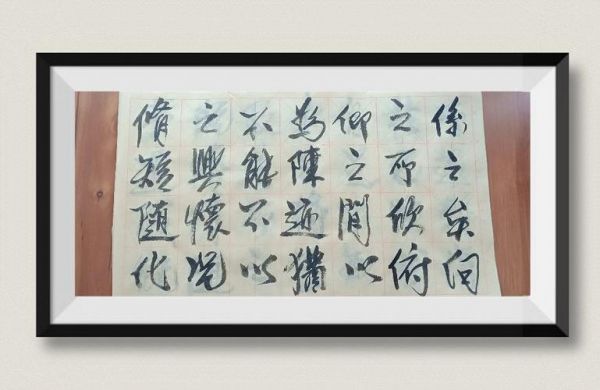 係之矣向
之所欣俯
仰之閒以
為陳迹猶
不能不以
之興懷况
脩短隨化